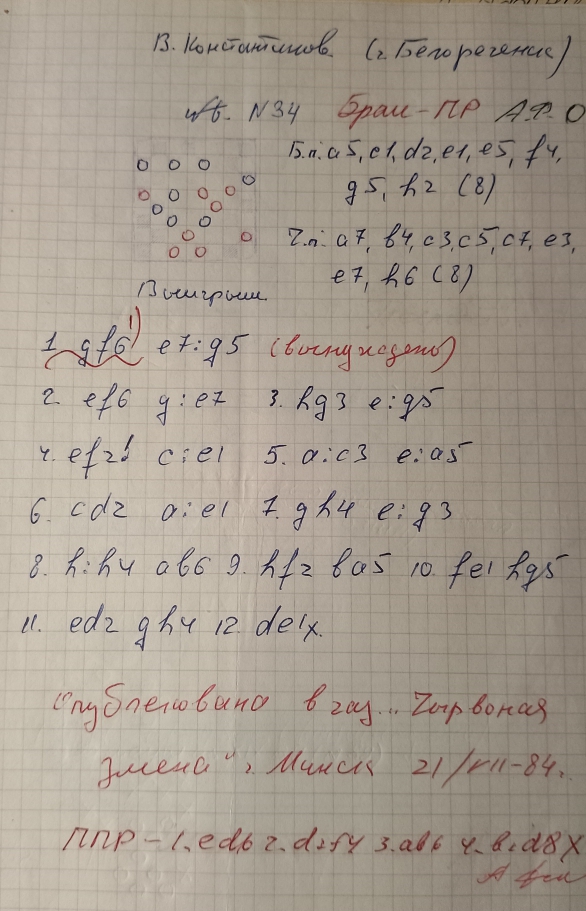 В. Константинов (г. Белореченск)
N34 Брак-ПР А.Р.О
Б.п: a5, c1, d2, e1, e5, f4,
g5, h2 (8)
Ч.п: a7, b4, c3, c5, c7, e3,
e7, h6 (8)
Выигрыш
1. gf6 1) e7:g5 (вынуждено)
2. ef6 g:e7 3. hg3 e:g5
4. ef2! c:e1 5. a:c3 e:a5
6. cd2 a:e1 7. gh4 e:g3
8. h:h4 ab6 9. hf2 ba5 10. fe1 hg5
11. ed2 gh4 12. de1x.
Опубликовано в газ. „Чырвоная
змена" г. Минск 21/VII-84.
ППР - 1. ed6 2. d:f4 3. ab6 4. b:d8X